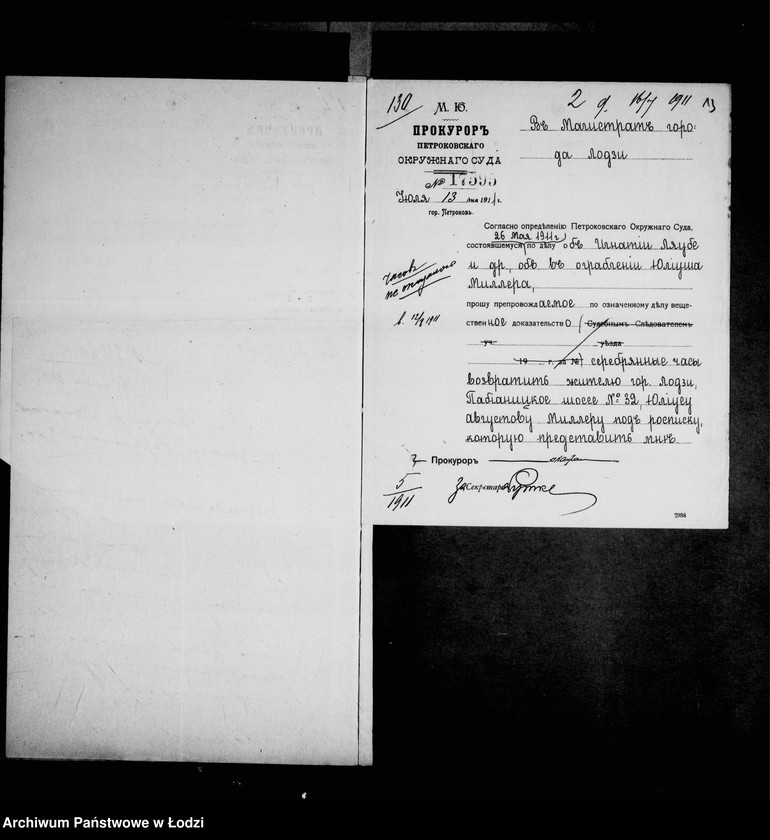 130
2 9. 16/7 1911
М. Ю.
ПРОКУРОРЪ
ПЕТРОКОВСКАГО
ОКРУЖНАГО СУДА
№ 17595
Іюля 13 дня 1911 г.
гор. Петроковъ.
Въ Магистратъ горо-
да Лодзи
Согласно опредѣленію Петроковскаго Окружнаго Суда,
26 Мая 1911 г.
состоявшемуся по дѣлу объ Игнатіи Ляубе
и др., обв. въ ограбленіи Юліуша
Миллера,
прошу препровождаемое по означенному дѣлу веще-
ственное доказательство (Судебнымъ Слѣдователемъ
уч. уѣзда
19 г. за №) серебрянные часы
возвратить жителю гор. Лодзи,
Пабіаницкое шоссе № 32, Юліусу
Августову Миллеру подъ росписку,
которую представить мнѣ.
Часовъ
не
12/8 1911
Прокуроръ
5
1911
За Секретаря
2938
Archiwum Państwowe w Łodzi